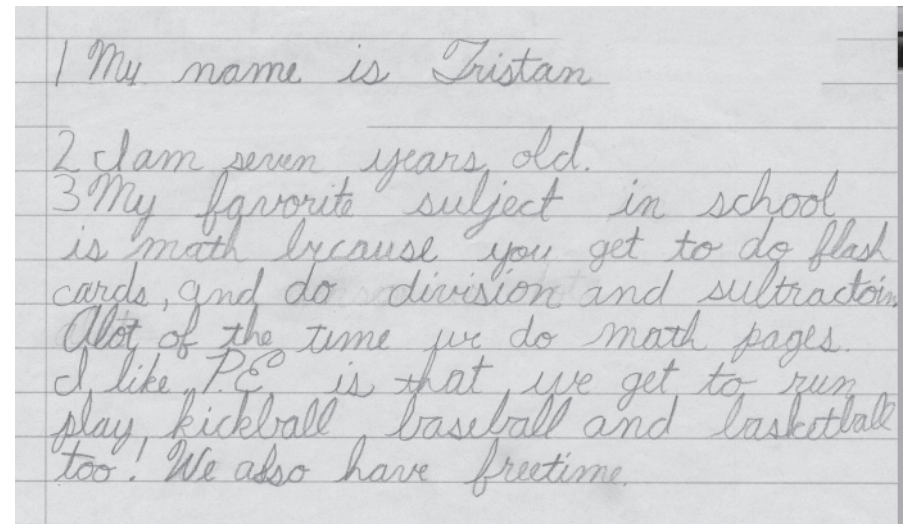 1 My name is Tristan
2 I am seven years old.
3 My favorite subject in school
is math because you get to do flash
cards, and do division and subtractoin.
Alot of the time we do math pages.
I like P.E is that we get to run
play, kickball baseball and basketball
too! We also have freetime.